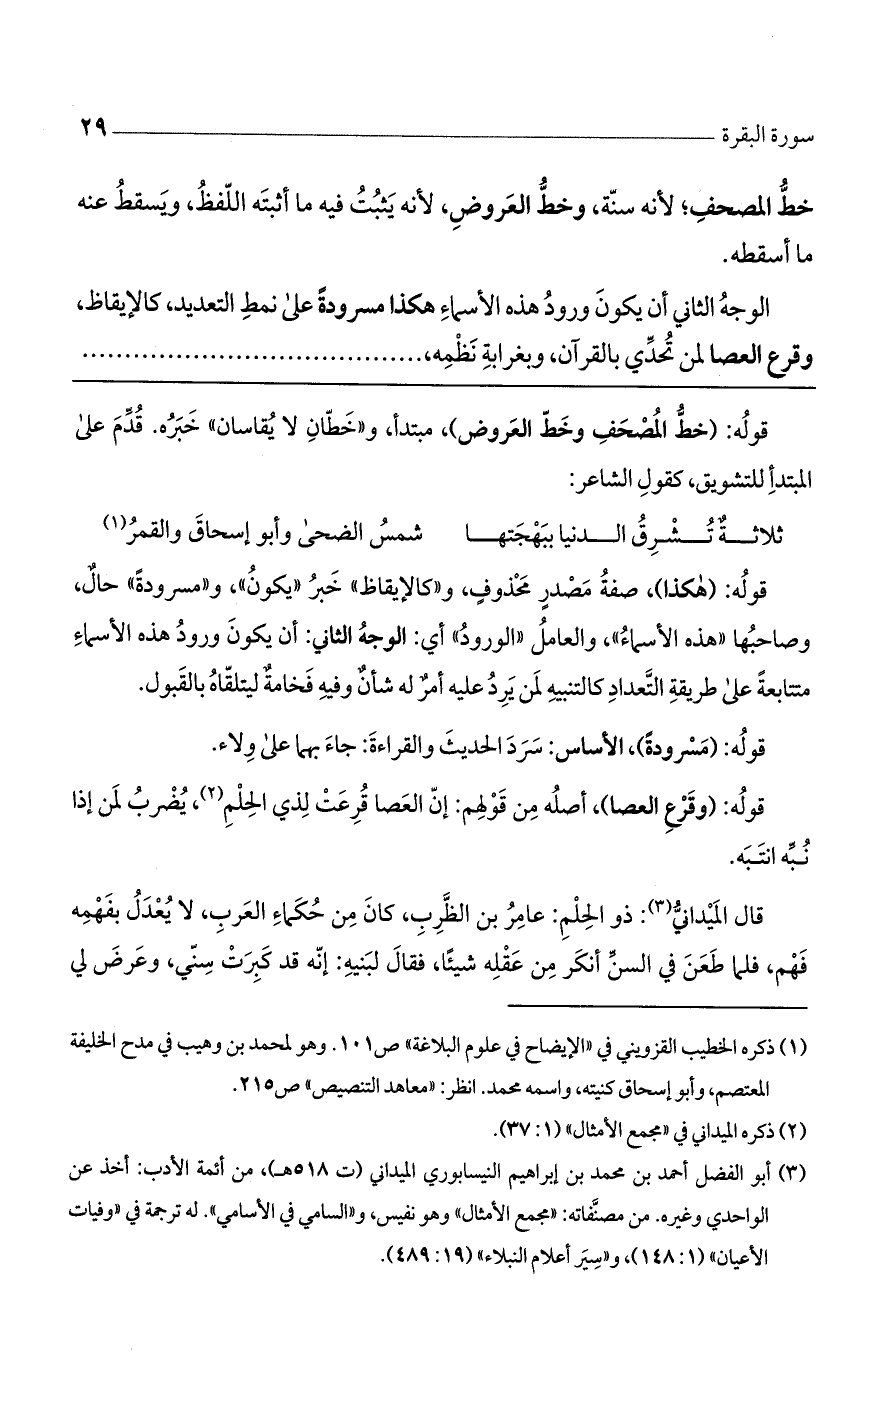 سورة البقرة ٢٩
خطُّ المصحفِ؛ لأنه سنّة، وخطُّ العَروضِ، لأنه يَثبُتُ فيه ما أثبتَه اللّفظُ، ويَسقطُ عنه
ما أسقطه.
الوجهُ الثاني أن يكونَ ورودُ هذه الأسماءِ هكذا مسرودةً علىٰ نمطِ التعديد، كالإيقاظ،
وقرع العصا لمن تُحدِّي بالقرآن، وبغرابةِ نَظْمِه، ......................................
قولُه: (خطُّ المُصْحَفِ وخَطّ العَروض)، مبتدأ، و«خَطّانِ لا يُقاسان» خَبَرُه. قُدِّمَ علىٰ
المبتدأِ للتشويق، كقولِ الشاعر:
ثلاثــةٌ تُــشْرِقُ الــدنيا ببَهْجَتهــا شمسُ الضحىٰ وأبو إسحاقَ والقمرُ(١)
قولُه: (هٰكذا)، صفةُ مَصْدرٍ مَحْذوفٍ، و«كالإيقاظ» خَبرُ «يكونُ»، و«مسرودةً» حالٌ،
وصاحبُها «هذه الأسماءُ»، والعاملُ «الورودُ» أي: الوجهُ الثاني: أن يكونَ ورودُ هذه الأسماءِ
متتابعةً علىٰ طريقةِ التَّعدادِ كالتنبيهِ لمن يَرِدُ عليه أمرٌ له شأنٌ وفيهِ فَخامةٌ ليتلقّاهُ بالقَبول.
قولُه: (مَسْرودةً)، الأساس: سَرَدَ الحديثَ والقراءةَ: جاءَ بهما علىٰ وِلاء.
قولُه: (وقَرْعِ العصا)، أصلُه مِن قَوْلِهم: إنّ العَصا قُرِعَتْ لِذي الحِلْمِ(٢)، يُضْربُ لمن إذا
نُبِّه انتَبَه.
قال المَيْدانيُّ(٣): ذو الحِلْمِ: عامِرُ بن الظَّرِبِ، كانَ مِن حُكَماءِ العَربِ، لا يُعْدَلُ بفَهْمِه
فَهْم، فلما طَعَنَ في السنِّ أنكَر مِن عَقْلِه شيئًا، فقالَ لبَنيهِ: إنّه قد كَبِرَتْ سِنّي، وعَرضَ لي
(١) ذكره الخطيب القزويني في «الإيضاح في علوم البلاغة» ص١٠١. وهو لمحمد بن وهيب في مدح الخليفة
المعتصم، وأبو إسحاق كنيته، واسمه محمد. انظر: «معاهد التنصيص» ص٢١٥.
(٢) ذكره الميداني في «مجمع الأمثال» (١: ٣٧).
(٣) أبو الفضل أحمد بن محمد بن إبراهيم النيسابوري الميداني (ت ٥١٨هـ)، من أئمة الأدب: أخذ عن
الواحدي وغيره. من مصنَّفاته: «مجمع الأمثال» وهو نفيس، و«السامي في الأسامي». له ترجمة في «وفيات
الأعيان» (١: ١٤٨)، و«سِيَر أعلام النبلاء» (١٩: ٤٨٩).